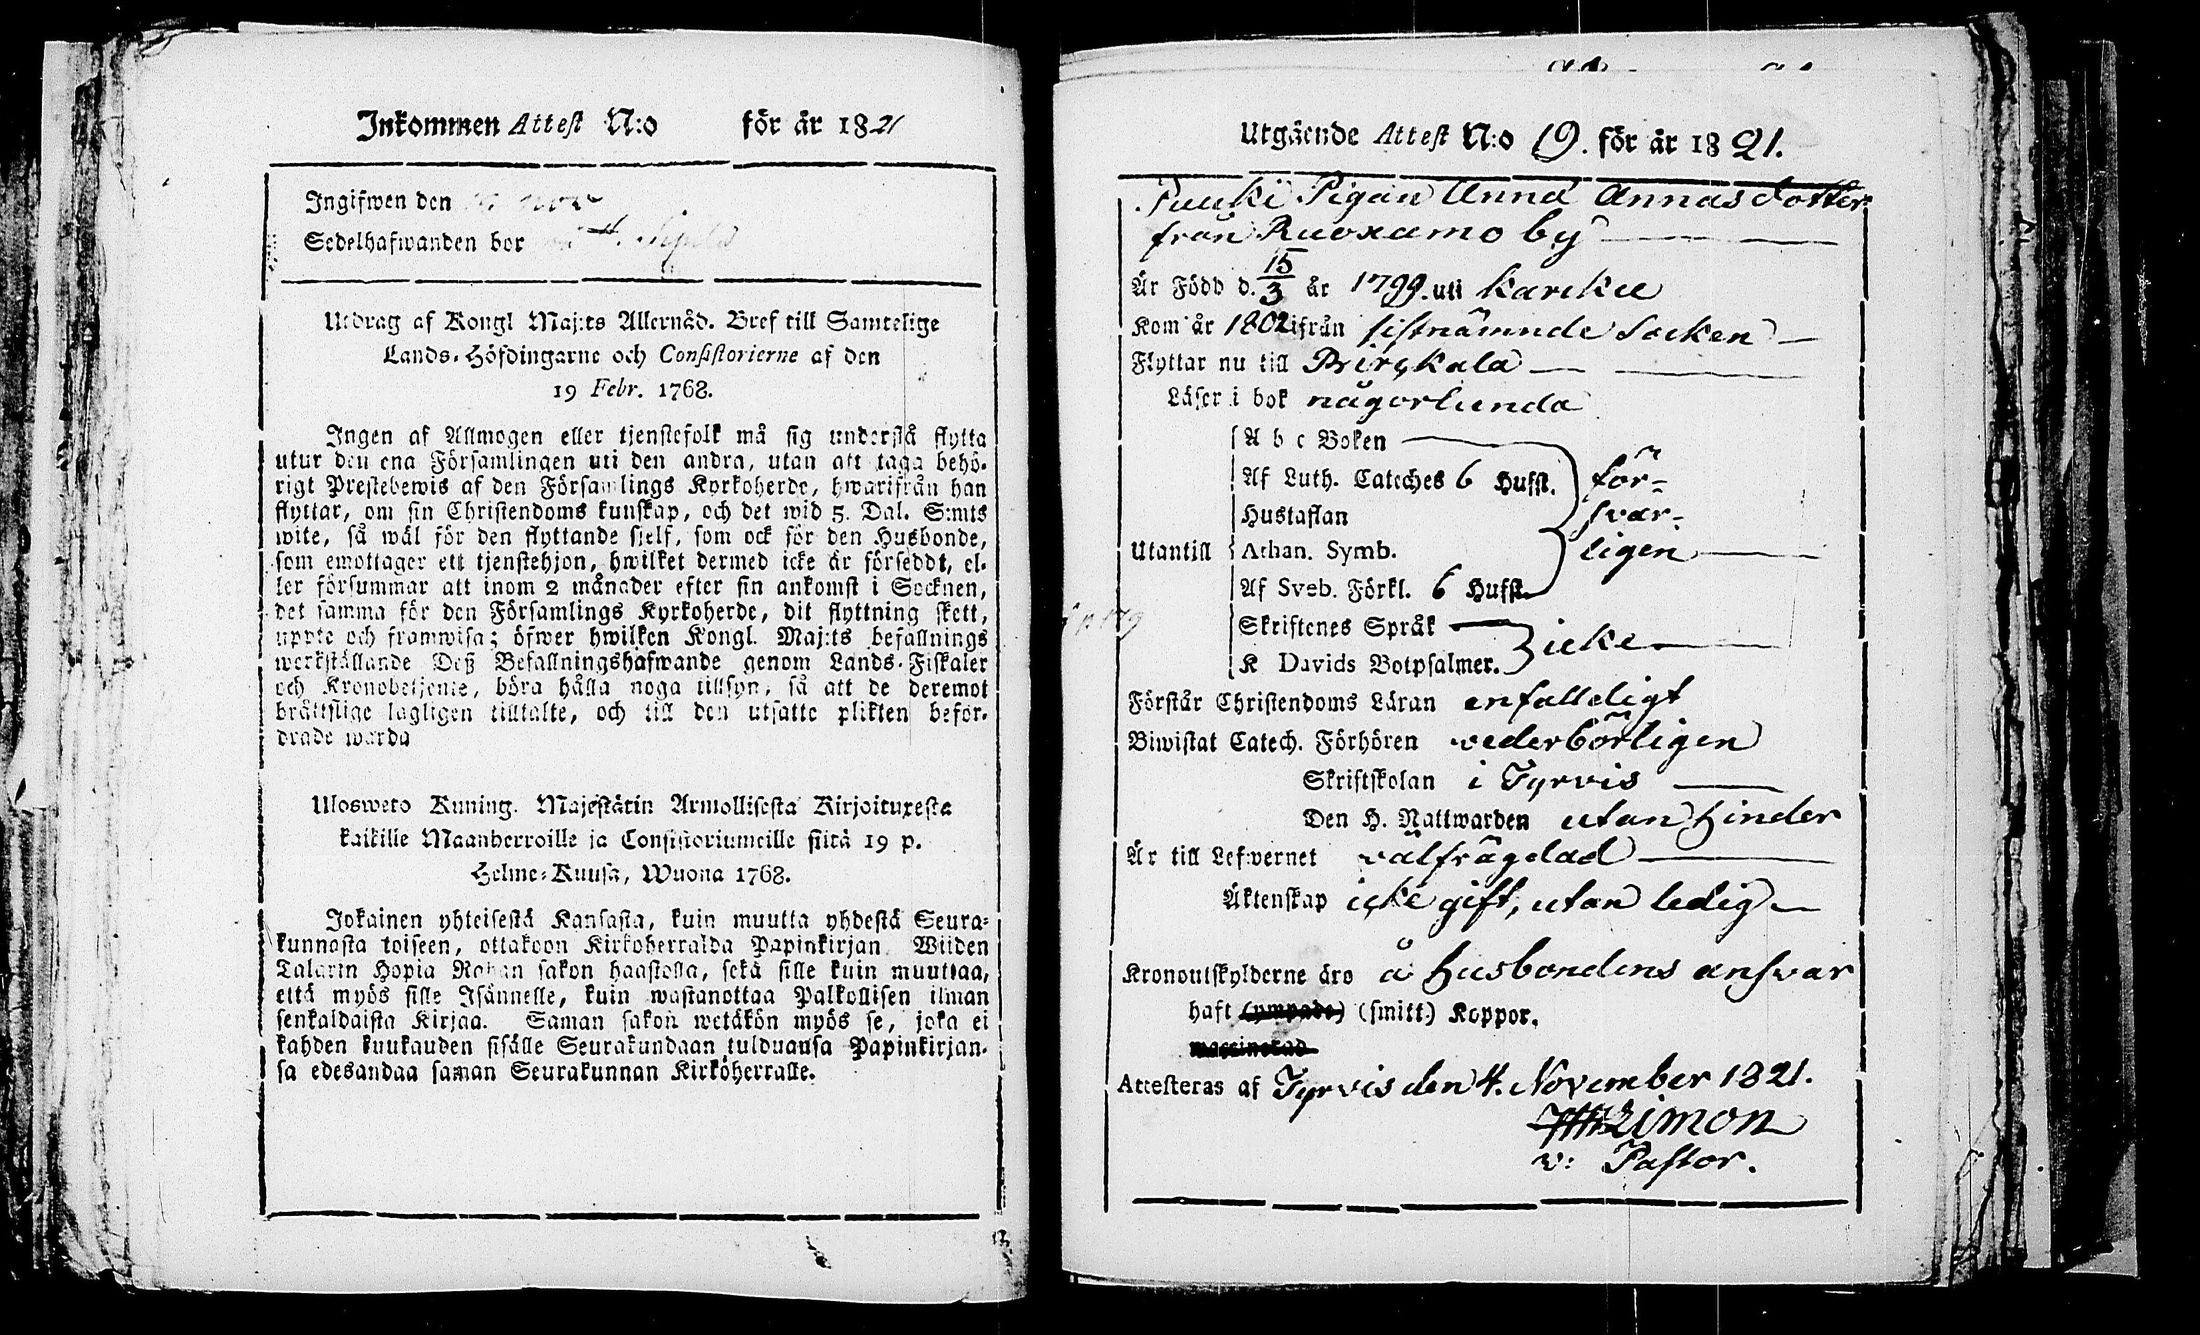 Inkommen Attest N:o för år 1821
Ingifwen den
Sedelhafwanden bor
Utdrag af Kongl Maj:ts Allernåd. Bref till Samtelige
Lands-Höfdingarne och Consistorierne af den
19 Febr. 1768.
Ingen af Allmogen eller tjenstefolk må sig understå flytta
utur den ena Församlingen uti den andra, utan att taga behö-
rigt Prestebewis af den Församlings Kyrkoherde, hwarifrån han
flyttar, om sin Christendoms kunskap, och det wid 5. Dal. S:mts
wite, så wäl för den flyttande sjelf, som ock för den Husbonde,
som emottager ett tjenstehjon, hwilket dermed icke är förseddt, el-
ler försummar att inom 2 månader efter sin ankomst i Socknen,
det samma för den Församlings Kyrkoherde, dit flyttning skett,
uppte och framwisa; öfwer hwilken Kongl. Maj:ts befallnings
werkställande Deß Befallningshafwande genom Lands-Fiskaler
och Kronobetjente, böra hålla noga tillsyn, så att de deremot
bråttslige lagligen tilltalte, och till den utsatte plikten beför-
drade warda
Uloswero Kuning. Majestätin Armollisesta Kirjoituxesta
kaikille Maanherroille ja Consistoriumeille siitä 19 p.
Helme-Kuusa, Wuona 1768.
Jokainen yhteisestä Kansasta, kuin muutta yhdestä Seura-
kunnasta toiseen, ottakoon Kirkoherralda Papinkirjan Wiiden
Talarin Hopia Rahan sakon haastolla, sekä sille kuin muuttaa,
että myös sille Isännelle, kuin wastanottaa Palkollisen ilman
senkaldaista Kirjaa. Saman sakon wetäkön myös se, joka ei
kahden kuukauden sisälle Seurakundaan tulduansa Papinkirjan-
sa edesandaa saman Seurakunnan Kirköherralle.
Utgående Attest N:o 19. för år 1821.
Pigan Anna Annas dotter
från Ruoxamo by
Är Född d. 15/3 år 1799. uti Karcku
Kom år 1802 ifrån sistnämnde Socken
Flyttar nu till Birckala
Läser i bok någorlunda
A b c Boken
Af Luth. Cateches 6 Hufst. för-
Hustaflan svar-
Utantill Athan. Symb. ligen
Af Sveb. Förkl. 6 Hufst.
Skriftenes Språk
K Davids Botpsalmer. icke
Förstår Christendoms Läran enfalleligt
Biwistat Catech. Förhören vederbörligen
Skriftskolan i Tyrvis
Den H. Nattwarden utan hinder
Är till Lefwernet välfrägdad
Äktenskap icke gift, utan ledig
Kronoutskylderne äro å Husbondens ansvar
haft (ympade) (smitt.) Koppor.
Attesteras af Tyrvis den 4. November 1821.
Limon
v: Pastor.